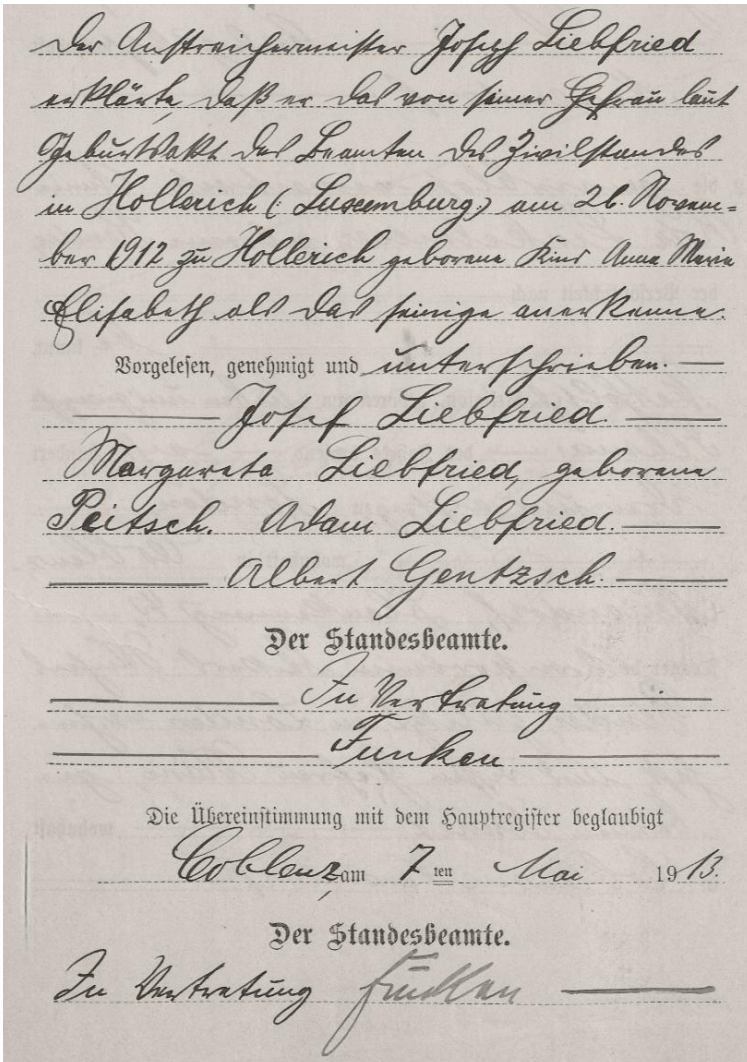 Der Anstreichermeister Joseph Liebfried
erklärte, daß er das von seiner Ehefrau laut
Geburtsakt des Beamten des Zivilstandes
in Hollerich (: Luxemburg) am 26. Novem-
ber 1912 zu Hollerich geborene Kind Anna Maria
Elisabeth als das seinige anerkenne.
Vorgelesen, genehmigt und unterschrieben.
Josef Liebfried
Margareta Liebfried, geborene
Peitsch. Adam Liebfried.
Albert Gentzsch.
Der Standesbeamte.
In Vertretung
Funken
Die Übereinstimmung mit dem Hauptregister beglaubigt
Coblenz, am 7 ten Mai 1913.
Der Standesbeamte.
In Vertretung Funken